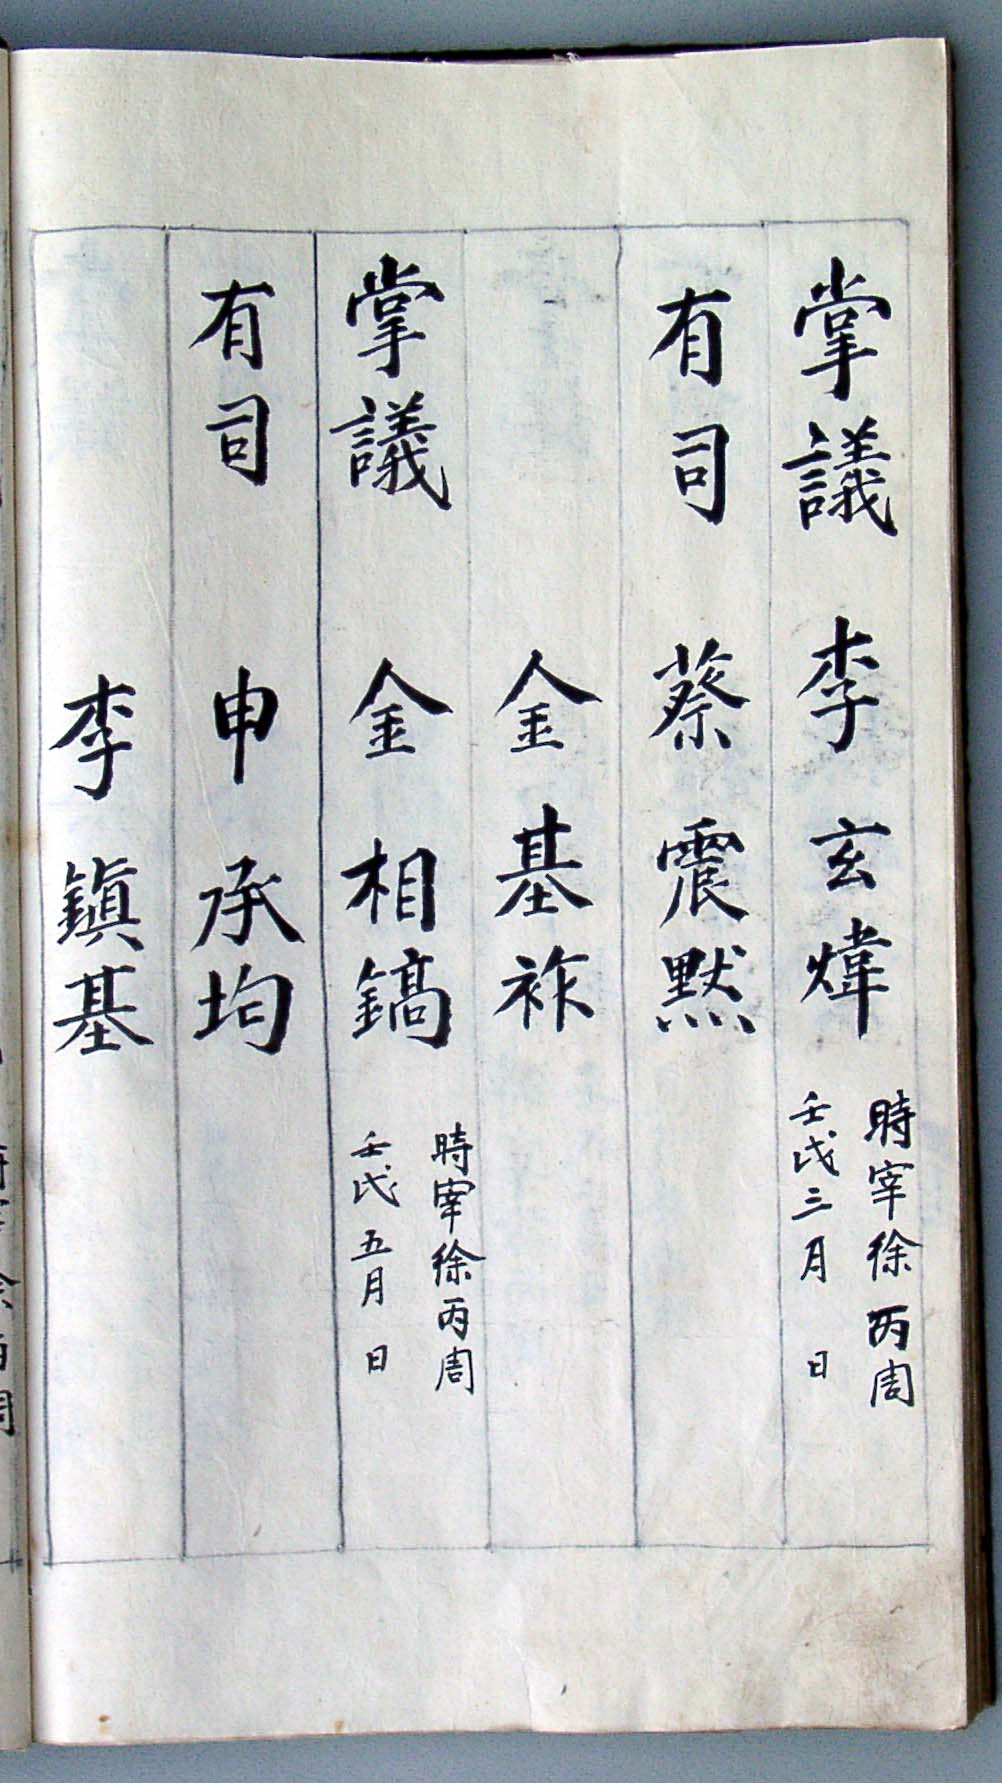 掌議 李玄煒 時宰徐丙周
壬戌三月 日
有司 蔡震黙
金基祚
掌議 金相鎬 時宰徐丙周
壬戌五月 日
有司 申承均
李鎮基